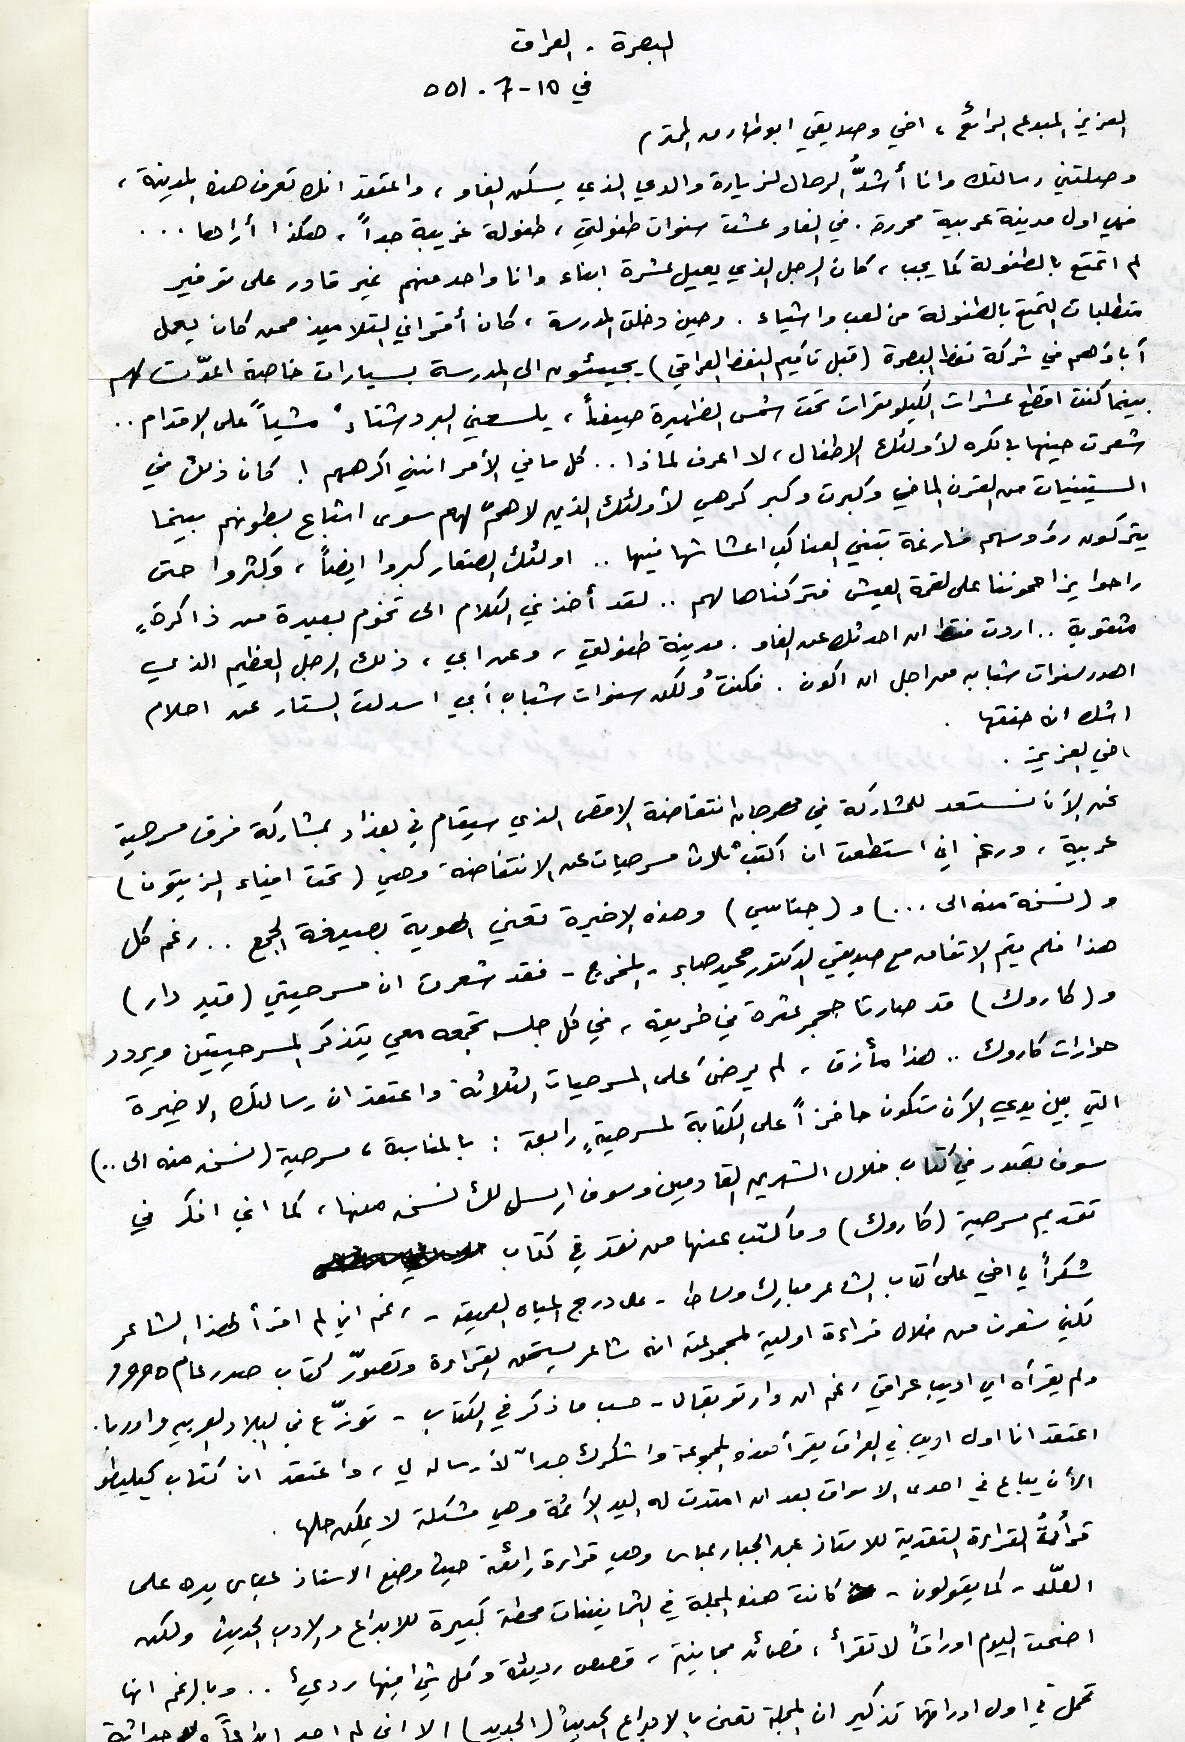 البصرة - العراق
في ١٥ - ٦ -
العزيز المبدع الرائع، اخي وصديقي ابو طارق المحترم
وصلتني رسالتك وانا أشدُّ الرحال لزيارة والدي الذي يسكن الفاو، واعتقد انك تعرف هذه المدينة،
فهي اول مدينة عربية محررة. في الفاو عشت سنوات طفولتي، طفولة غريبة جداً، هكذا أراها ...
لم اتمتع بالطفولة كما يجب، كان الرجل الذي يعيل عشرة ابناء وانا واحد منهم غير قادر على توفير
متطلبات التمتع بالطفولة من لعب واشياء. وحين دخلت المدرسة، كان أقراني التلاميذ ممن كان يعمل
آباؤهم في شركة نفط البصرة (قبل تأميم النفط العراقي) يجيئون الى المدرسة بسيارات خاصة اعدّت لهم
بينما كنت اقطع عشرات الكيلومترات تحت شمس الظهيرة صيفاً، يلسعني البرد شتاءً مشياً على الاقدام..
شعرت حينها بالكره لأولئك الاطفال، لا اعرف لماذا.. كل ما في الأمر انني اكرههم! كان ذلك في
الستينيات من القرن الماضي وكبرت وكبر كرهي لأولئك الذين لاهمّ لهم سوى اشباع بطونهم بينما
يتركون رؤوسهم فارغة تبني العناكب اعشاشها فيها.. اولئك الصغار كبروا ايضاً، وكثروا حتى
راحوا يزاحموننا على لقمة العيش فتركناها لهم.. لقد أخذني الكلام الى تخوم بعيدة من ذاكرةٍ
مثقوبة.. اردت فقط ان احدثك عن الفاو. مدينة طفولتي، وعن ابي، ذلك الرجل العظيم الذي
اهدر سنوات شبابه من اجل ان اكون. فكنتُ ولكن سنوات شباب أبي اسدلت الستار عن احلام
اشك انه حققها.
اخي العزيز.
نحن الآن نستعد للمشاركة في مهرجان انتفاضة الاقصى الذي سيقام في بغداد بمشاركة فرق مسرحية
عربية، ورغم اني استطعت ان اكتب ثلاث مسرحيات عن الانتفاضة وهي (تحت افياء الزيتون)
و (نسخة منه الى ...) و (جناسي) وهذه الاخيرة تعني الهوية بصيغة الجمع.. رغم كل
هذا فلم يتم الاتفاق مع صديقي الدكتور حميد صابر - المخرج - فقد شعرت ان مسرحيتي (قيد دار)
و (كاروك) قد صارتا حجر عثرة في طريقه، في كل جلسه تجمعه معي يتذكر المسرحيتين ويردد
حوارات كاروك.. هذا مأزق، لم يرضَ على المسرحيات الثلاثة واعتقد ان رسالتك الاخيرة
التي بين يدي الآن ستكون حافزاً على الكتابة لمسرحيةٍ رابعة: بالمناسبة، مسرحية (نسخه منه الى..)
سوف تصدر في كتاب خلال الشهرين القادمين وسوف ارسل لك نسخه منها، كما اني افكر في
تقديم مسرحية (كاروك) وما كتب عنها من نقد في كتاب
شكراً يا اخي على كتاب الشاعر مبارك وساط - على درج المياه العميقه - رغم اني لم اقرأ لهذا الشاعر
لكني شعرت من خلال قراءة اولية لمجموعته انه شاعر يستحق القراءة وتصوّر كتاب صدر عام ١٩٩٥
ولم يقرأه اي اديب عراقي رغم ان دار توبقال - حسب ما ذكر في الكتاب - توزّع في البلاد العربيه واوربا.
اعتقد انا اول اديب في العراق يقرأ هذه المجموعة واشكرك جداً لأرساله لي، واعتقد ان كتاب كيليطو
الآن يباع في احدى الاسواق بعد ان امتدت له اليد الآثمة وهي مشكلة لا يمكن حلها.
قرأت القراءة النقدية للاستاذ عبد الجبار عباس وهي قراءة رائعة حيث وضع الاستاذ عباس يده على
العلّة - كما يقولون - كانت هذه المجلة في الثمانينات محطة كبيرة للابداع والادب الحديث ولكن
اضحت اليوم اوراقاً لا تقرأ، قصائد مجانية، قصص رديئة وكل شئ فيها ردئ.. وبالرغم انها
تحمل في اول اوراقها تذكير ان المجلة تعنى بالابداع الحديث (الجديد) الا اني لم اجد ابداعاً